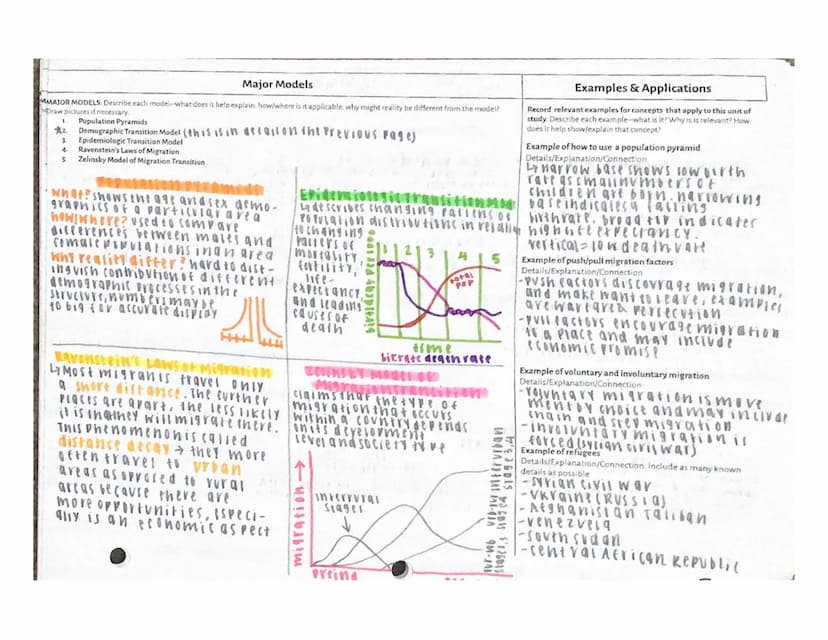 Major Models
MAJOR MODELS: Describe each model—what does it help explain, how/where is it applicable, why might reality be different from the model?
Draw pictures if necessary.
1. Population Pyramids
2. Demographic Transition Model (this is in detail on the previous page)
3. Epidemiologic Transition Model
4. Ravenstein's Laws of Migration
5. Zelinsky Model of Migration Transition
Population Pyramids
What? shows the age and sex demo-
graphics of a particular area
how/where? used to compare
differences between males and
female populations in an area
Why reality differ? hard to dist-
inguish contributions of different
demographic processes in the
structure, numbers may be
to big for accurate display
Epidemiologic Transition Mod
↳ describes changing patterns of
population distributions in relation
to changing
patterns of
mortality,
fertility,
life-
expectancy
and leading
causes of
death
1 2 3 4 5
total
pop
time
birth rate death rate
Ravenstein's Laws of Migration
↳ Most migrants travel only
a short distance. The further
places are apart, the less likely
it is that they will migrate there.
This phenomenon is called
distance decay → they more
often travel to urban
areas as opposed to rural
areas because there are
more opportunities, especi-
ally is an economic aspect
Zelinsky Model of
Migration Transition
claims that the type of
migration that occurs
within a country depends
on its development
level and society type
migration →
stages
Examples & Applications
Record relevant examples for concepts that apply to this unit of
study. Describe each example—what is it? Why is is relevant? How
does it help show/explain that concept?
Example of how to use a population pyramid
Details/Explanation/Connection
↳ narrow base shows low birth
rate as small numbers of
children are born. narrowing
base indicates a falling
birthrate. broad top indicates
high life expectancy.
vertical = low death rate
Example of push/pull migration factors
Details/Explanation/Connection
-push factors discourage migration,
and make want to leave, examples
are warfare & persecution
-pull factors encourage migration
to a place and may include
economic promise
Example of voluntary and involuntary migration
Details/Explanation/Connection
-voluntary migration is move
ment by choice and may include
chain and step migration
-involuntary migration is
forced (syrian civil war)
Example of refugees
Details/Explanation/Connection, include as many known
details as possible
-syrian civil war
-ukraine (Russia)
-Afghanistan Taliban
-venezuela
-south sudan
-central African Republic